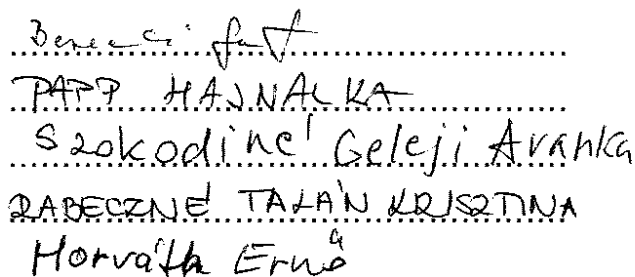 PAPP HAJNALKA
Szokodiné Geleji Aranka
RABECZNÉ TALÁN KRISZTINA
Horváth Ernő